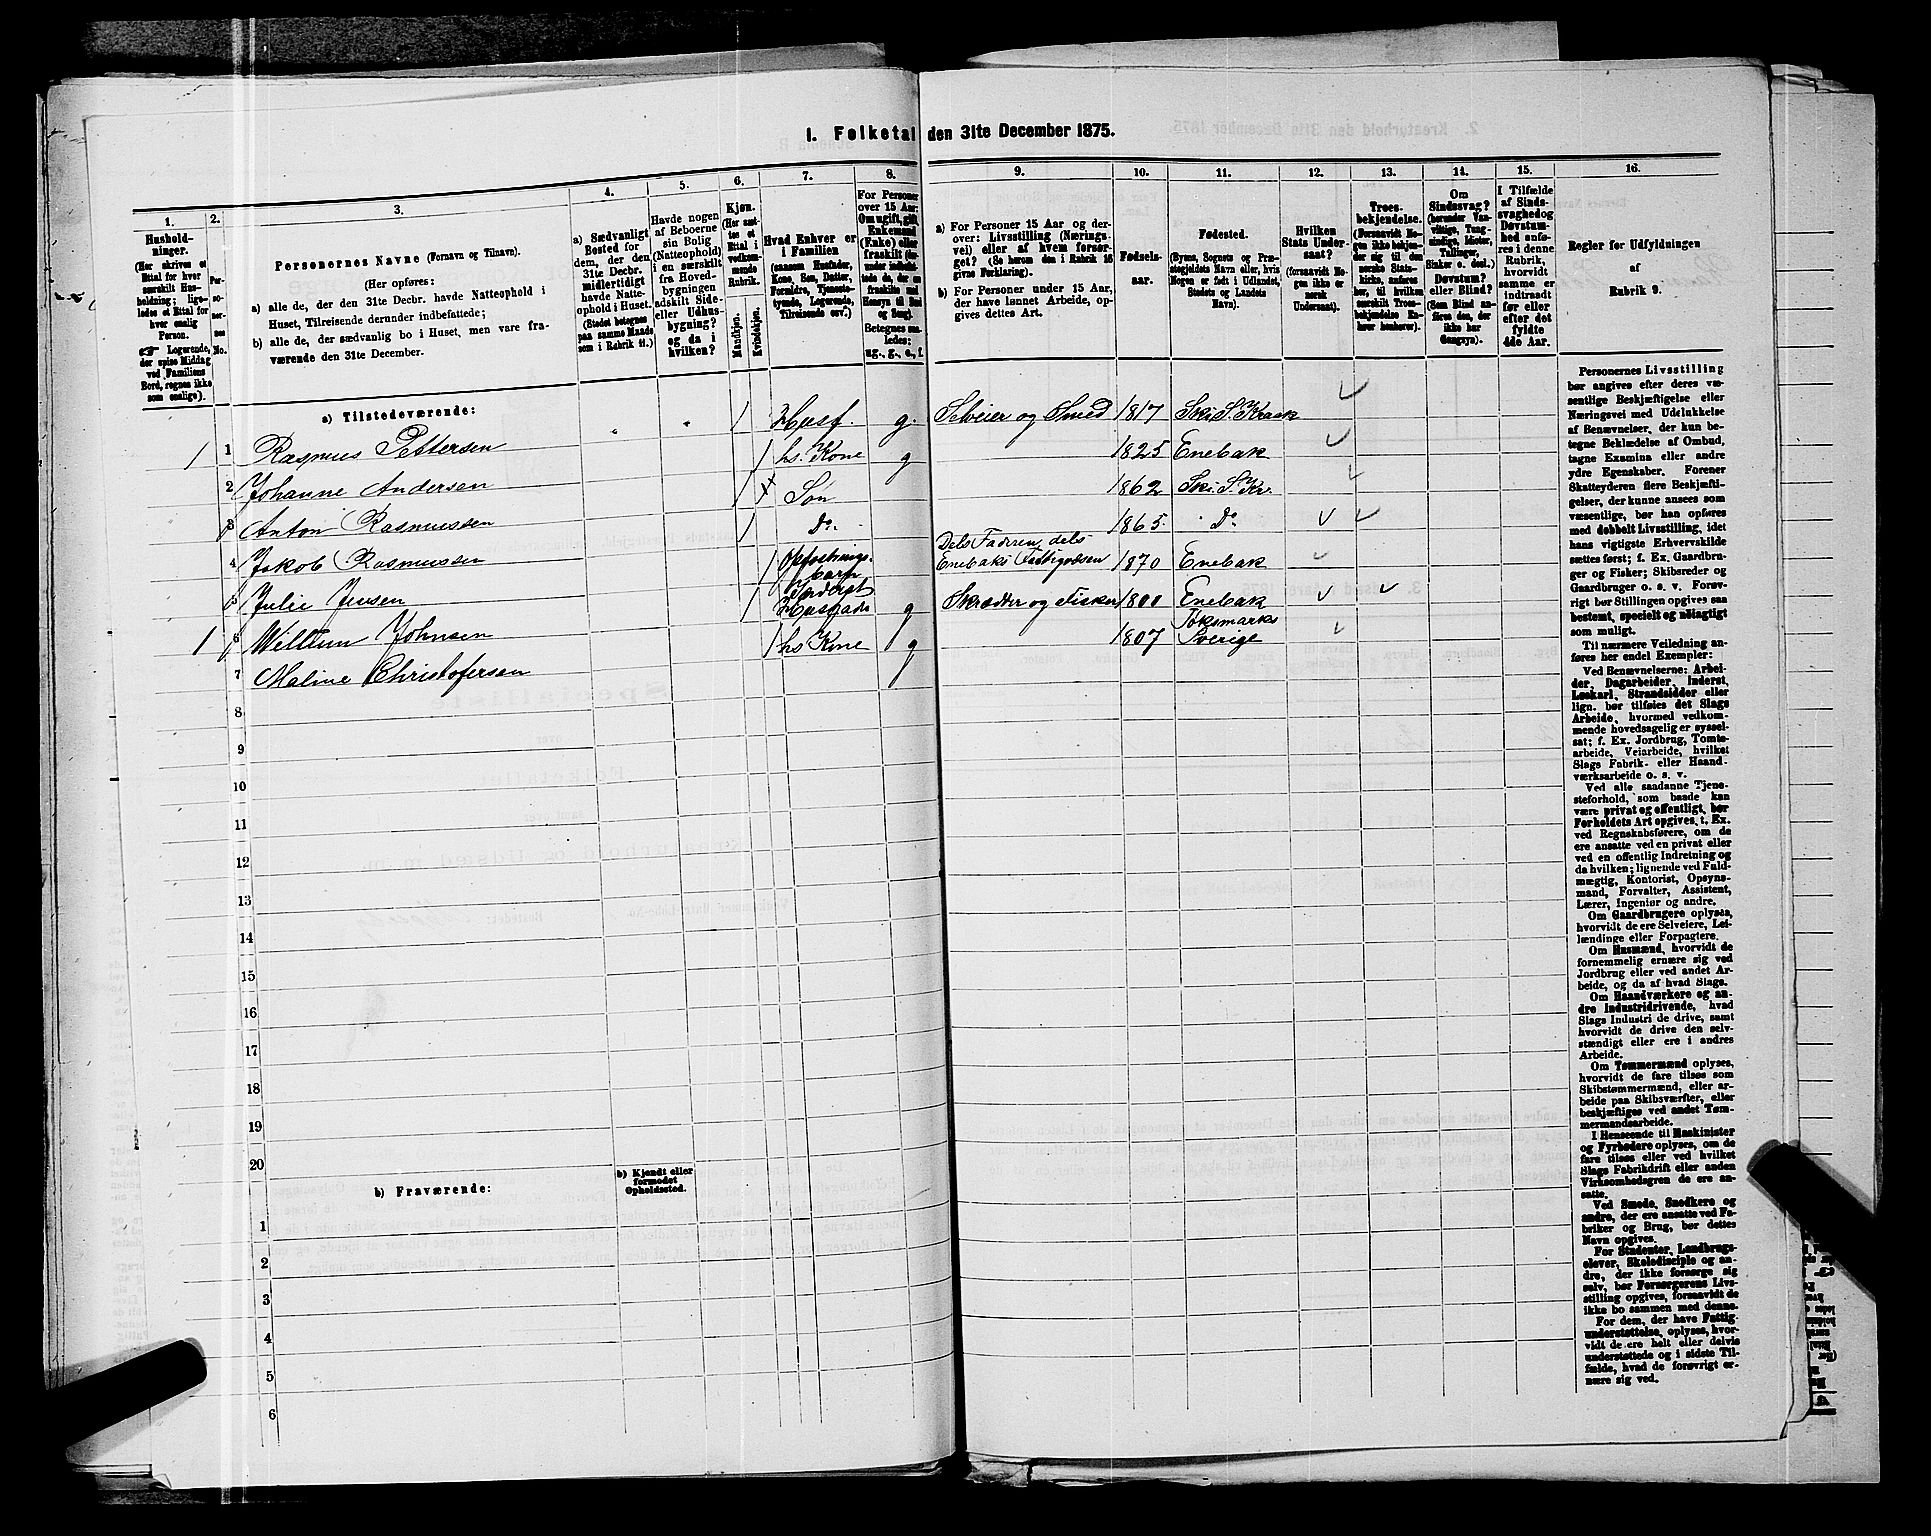 1. Folketal den 31te December 1875.
1.
Hushold-
ninger.
(Her skrives et
Ettal for hver
særskilt Hus-
holdning; lige-
ledes et Ettal for
hver enslig
Person.
☞ Logerende,
der spise Middag
ved Familiens
Bord, regnes ikke
som enslige).
2.
Per-
so-
ner-
nes
No.
3.
Personernes Navne (Fornavn og Tilnavn).
(Her opføres:
a) alle de, der den 31te Decbr. havde Natteophold i
Huset, Tilreisende derunder indbefattede;
b) alle de, der sædvanlig bo i Huset, men vare fra-
værende den 31te December.
4.
a) Sædvanligt
Bosted for
dem, der den
31te Decbr.
midlertidigt
havde Natte-
ophold i Huset.
(Stedet betegnes
paa samme Maade
som i Rubrik 11.)
5.
Havde nogen
af Beboerne
sin Bolig
(Natteophold)
i en særskilt
fra Hoved-
bygningen
adskilt Side-
eller Udhus-
bygning?
og da i
hvilken?
6.
Kjøn.
(Her sæt-
tes et
Ettal i
vedkom-
mende
Rubrik.
Mandkjøn.
Kvindekjøn.
7.
Hvad Enhver er
i Familien
(saasom Husfader,
Kone, Søn, Datter,
Forældre, Tjeneste-
tyende, Logerende,
Tilreisende osv.)
8.
For Personer
over 15 Aar:
Om ugift, gift,
Enkemand
(Enke) eller
fraskilt
Betegnes saa-
ledes:
ug., g., e., f.
9.
a) For Personer 15 Aar og der-
over: Livsstilling (Nærings-
vei) eller af hvem forsør-
get? (Se herom den i Rubrik 16
givne Forklaring).
b) For Personer under 15 Aar,
der have lønnet Arbeide, op-
gives dettes Art.
10.
Fødsels-
aar.
11.
Fødested.
(Byens, Sognets og Præ-
stegjeldets Navn eller, hvis
Nogen er født i Udlandet,
Stedets og Landets
Navn).
12.
Hvilken
Stats Under-
saat?
(forsaavidt No-
gen ikke er
norsk
Undersaat).
13.
Troes-
bekjendelse.
(Forsaavidt No-
gen ikke bekjen-
der sig til den
norske Stats-
kirke, anføres
her, til hvilken
særskilt Troes-
bekjendelse En-
hver henhører).
14.
Om
Sindssvag?
(herunder Van-
vittige, Tung-
sindige, Idioter,
Tullinger,
Sinker o. desl.)
Døvstum?
eller Blind?
(Som Blind an-
føres den, der
ikke har
Gangsyn).
15.
I Tilfælde
af Sinds-
svaghed og
Døvstum-
hed anfø-
res i denne
Rubrik,
hvorvidt
samme er
indtraadt
før eller
efter det
fyldte
4de Aar.
16.
Regler for Udfyldningen
af
Rubrik 9.
a) Tilstedeværende:
1 1 Rasmus Pettersen 1 Husf. g. Selveier og Smed 1817 Ski S. Kraak
2 Johanne Andersen 1 hs. Kone g 1825 Enebak
3 Anton Rasmussen 1 Søn 1862 Ski. S. Kr.
4 Jakob Rasmussen 1 Do. 1865. Do.
5 Julie Jensen 1 Opfostrings-
barn Dels Faderen, dels
Enebaks Fattigvæsen 1870 Enebak
1 6 Willum Johnsen 1 Inderst
Husfader g Skrædder og Fisker 1800 Enebak
7 Maline Christofersen 1 hs Kone g 1807
Sverige
8
9
10
11
12
13
14
15
16
17
18
19
20
b) Fraværende:
b) Kjendt eller
formodet
Opholdssted.
1
2
3
4
5
6
Personernes Livsstilling
bør angives efter deres væ-
sentlige Beskjæftigelse eller
Næringsvei med Udelukkelse
af Benævnelser, der kun be-
tegne Beklædelse af Ombud,
tagne Examina eller andre
ydre Egenskaber. Forener
Skatteyderen flere Beskjæfti-
gelser, der kunne ansees som
væsentlige, bør han opføres
med dobbelt Livsstilling, idet
hans vigtigste Erhvervskilde
sættes først; f. Ex. Gaardbru-
ger og Fisker; Skibsreder og
Gaardbruger o. s. v. Forøv-
rigt bør Stillingen opgives saa
bestemt, specielt og nøiagtigt
som muligt.
Til nærmere Veiledning an-
føres her endel Exempler:
Ved Benævnelserne: Arbei-
der, Dagarbeider, Inderst,
Løskarl, Strandsidder eller
lign. bør tilføies det Slags
Arbeide, hvormed vedkom-
mende hovedsagelig er syssel-
sat; f. Ex. Jordbrug, Tomte-
arbeide, Veiarbeide, hvilket
Slags Fabrik- eller Haand-
værksarbeide o. s. v.
Ved alle saadanne Tjene-
steforhold, som baade kan
være privat og offentligt, bør
Forholdets Art opgives, t. Ex.
ved Regnskabsførere, om de
ere ansatte ved en privat eller
ved en offentlig Indretning og
da hvilken; lignende ved Fuld-
mægtig, Kontorist, Opsyns-
mand, Forvalter, Assistent,
Lærer, Ingeniør og andre.
Om Gaardbrugere oplyses,
hvorvidt de ere Selveiere, Lei-
lændinge eller Forpagtere.
Om Husmænd, hvorvidt de
fornemmelig ernære sig ved
Jordbrug eller ved andet Ar-
beide, og da af hvad Slags.
Om Haandværkere og an-
dre Industridrivende, hvad
Slags Industri de drive, samt
hvorvidt de drive den selv-
stændigt eller ere i andres
Arbeide.
Om Tømmermænd oplyses,
hvorvidt de fare tilsøs som
Skibstømmermænd, eller ar-
beide paa Skibsværfter, eller
beskjæftiges ved andet Tøm-
mermandsarbeide.
I Henseende til Maskinister
og Fyrbødere oplyses, om de
fare tilsøs eller ved hvilket
Slags Fabrikdrift eller anden
Virksomhedsgren de ere an-
satte.
Ved Smede, Snedkere og
andre, der ere ansatte ved Fa-
briker og Brug, bør dettes
Navn opgives.
For Studenter, Landbrugs-
elever, Skoledisciple og an-
dre, der ikke forsørge sig
selv, bør Forsørgerens Livs-
stilling opgives, forsaavidt de
ikke bo sammen med denne.
For dem, der have Fattig-
understøttelse, oplyses, hvor-
vidt de ere helt eller delvis
understøttede og i sidste Til-
fælde, hvad de forøvrigt er-
nære sig ved.